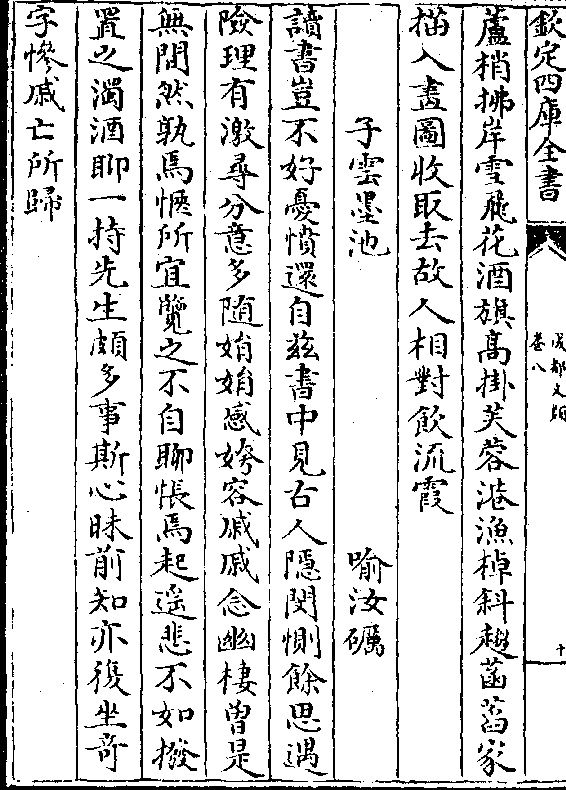 欽定四庫全書
成都文類
卷八
十
蘆梢拂岸雪飛花酒旗高掛芙蓉港漁棹斜趨菡萏家
描入畫圖收取去故人相對飲流霞
子雲墨池
喻汝礪
讀書豈不好憂憤還自兹書中見古人隱閔惻餘思遇
險理有激尋分意多随娟娟感姱容戚戚念幽棲曾是
無間然孰焉愜所宜覽之不自聊悵焉起遥悲不如撥
置之濁酒聊一持先生頗多事斯心昧前知亦復坐竒
字慘戚亡所歸